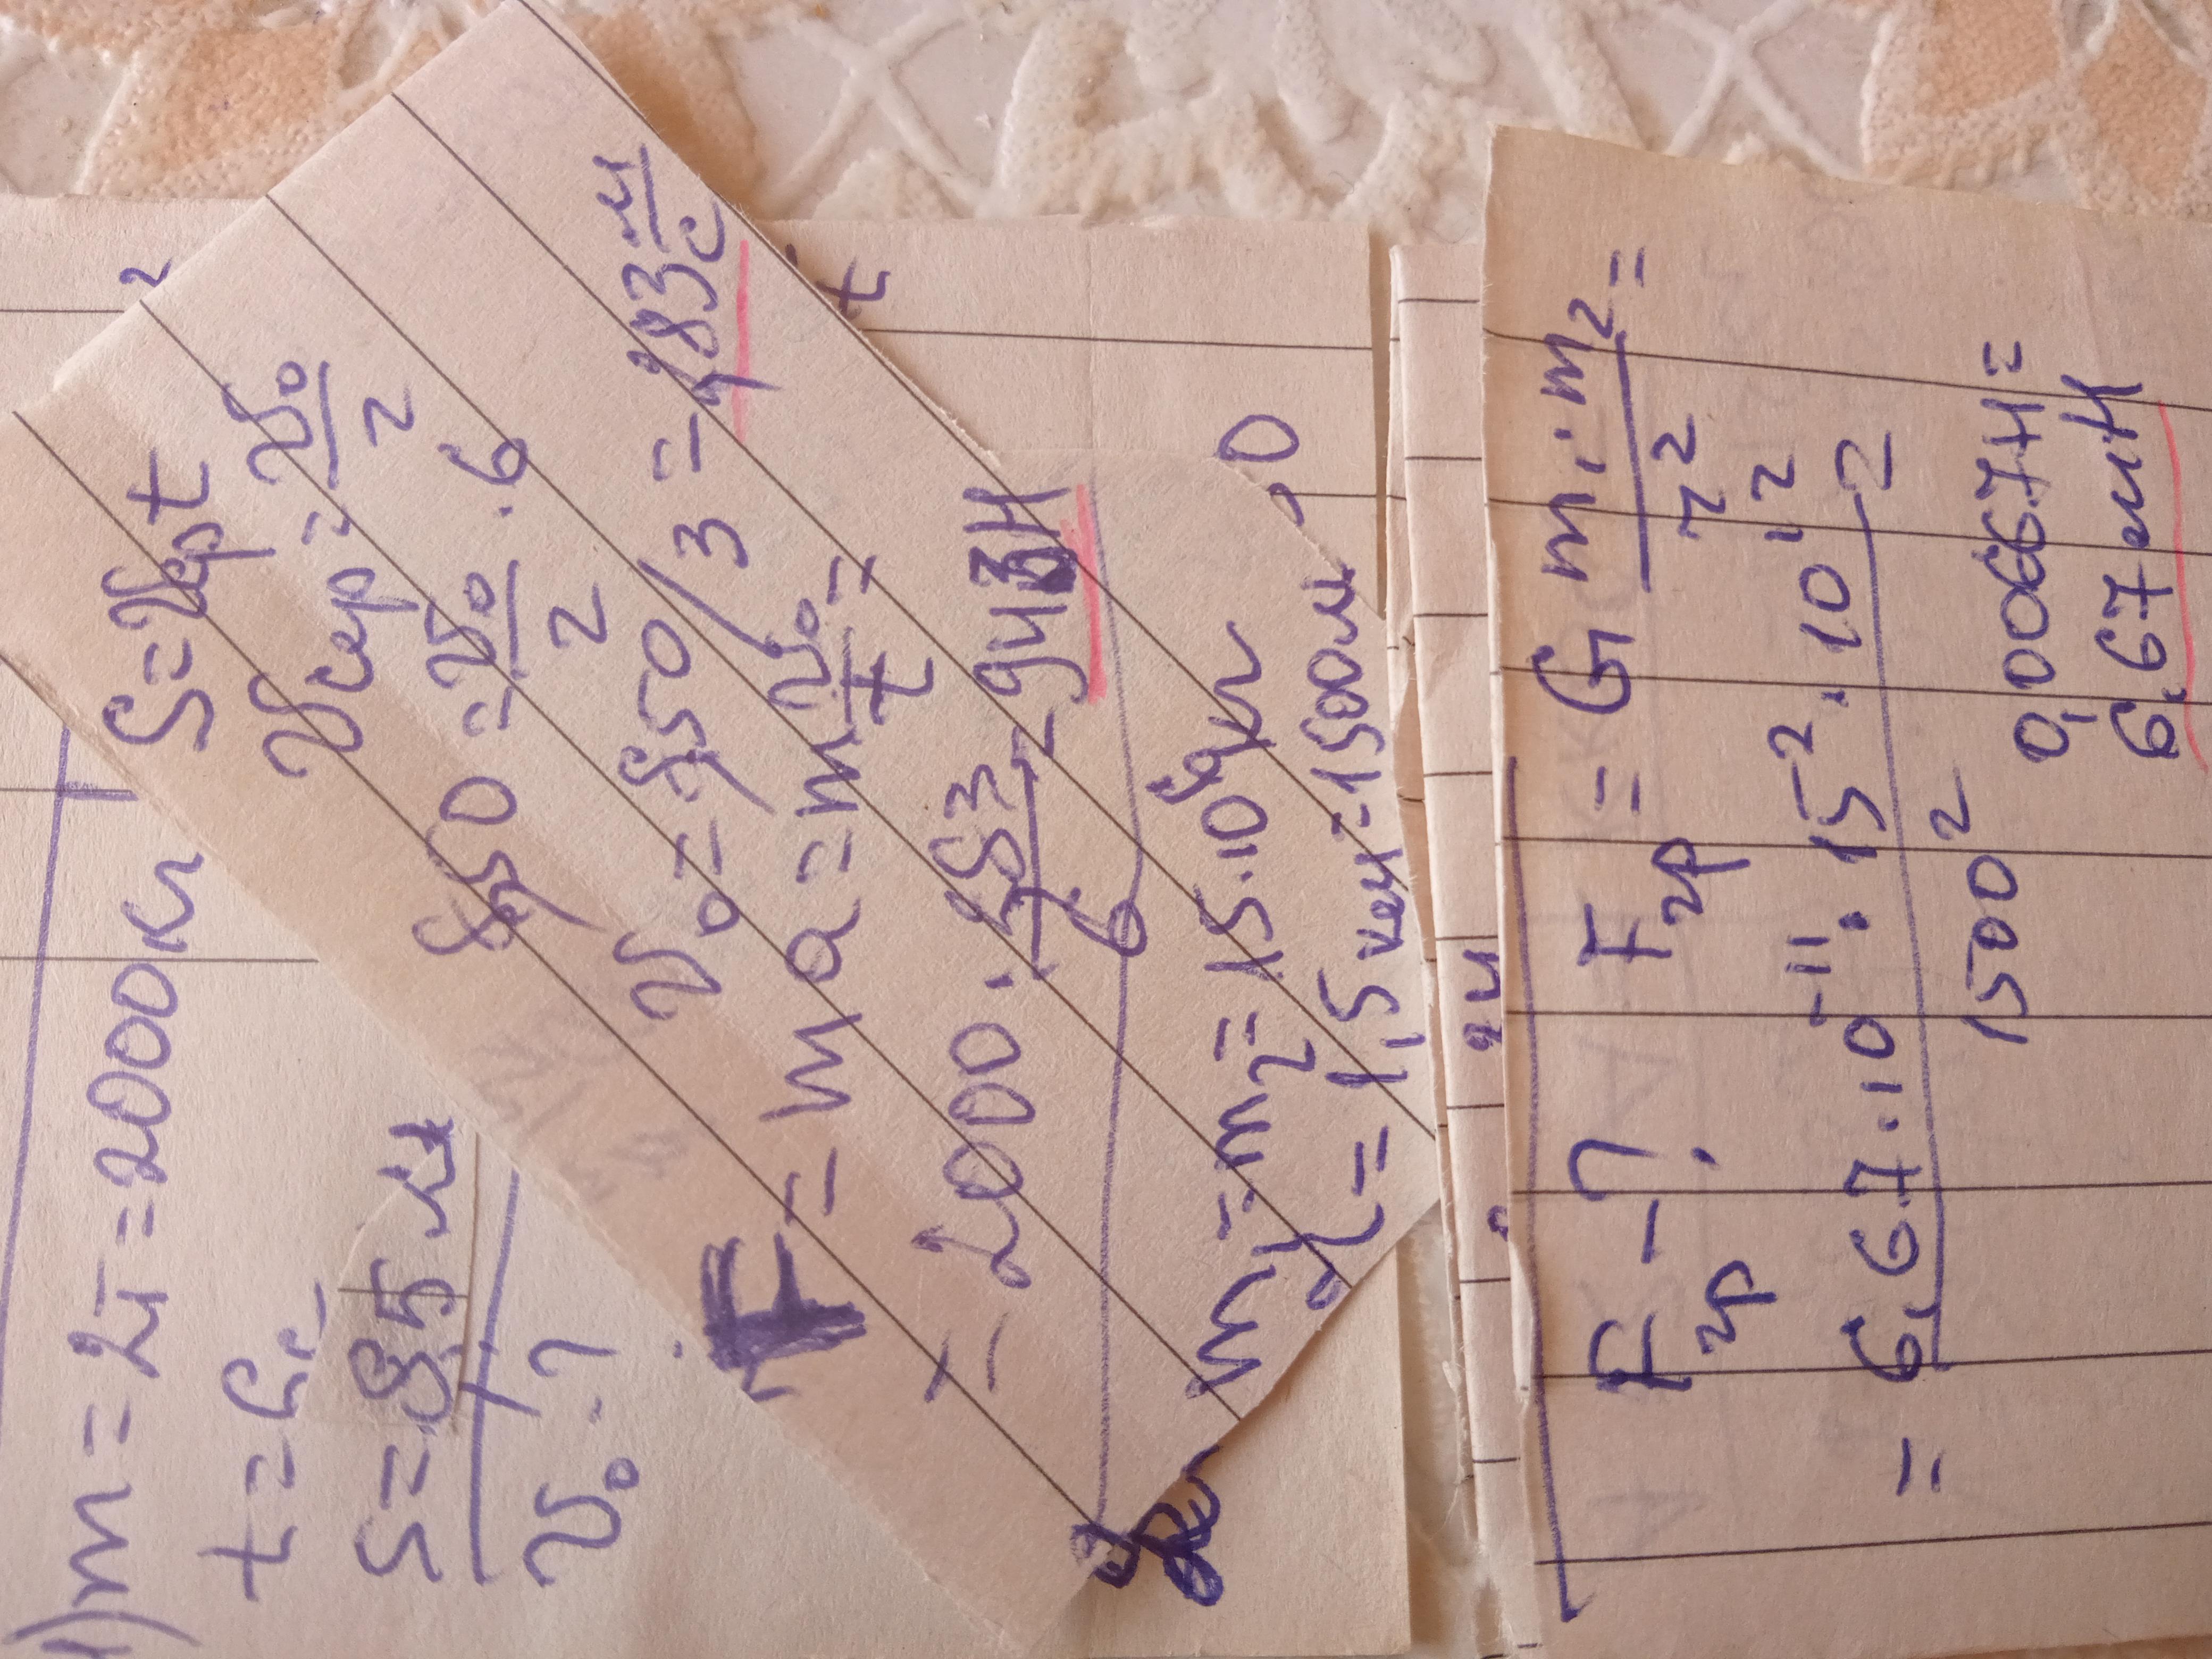 1) m = 2т = 2000кг
t = 6с
S = 85 м
v₀ - ?
S = vср t
vср = v₀/2
850 = v₀/2 · 6
v₀ = 850/3 = 283 м/с
F = ma = m v₀/t =
= 2000 · 283/6 = 943Н
2
t
0
m₁ = m₂ = 15·10⁶кг
r = 1,5 км = 1500м
Fгр - ? Fгр = G m₁·m₂/r² =
= 6,67·10⁻¹¹·15²·10¹²/1500²
0,00667Н =
6,67мН